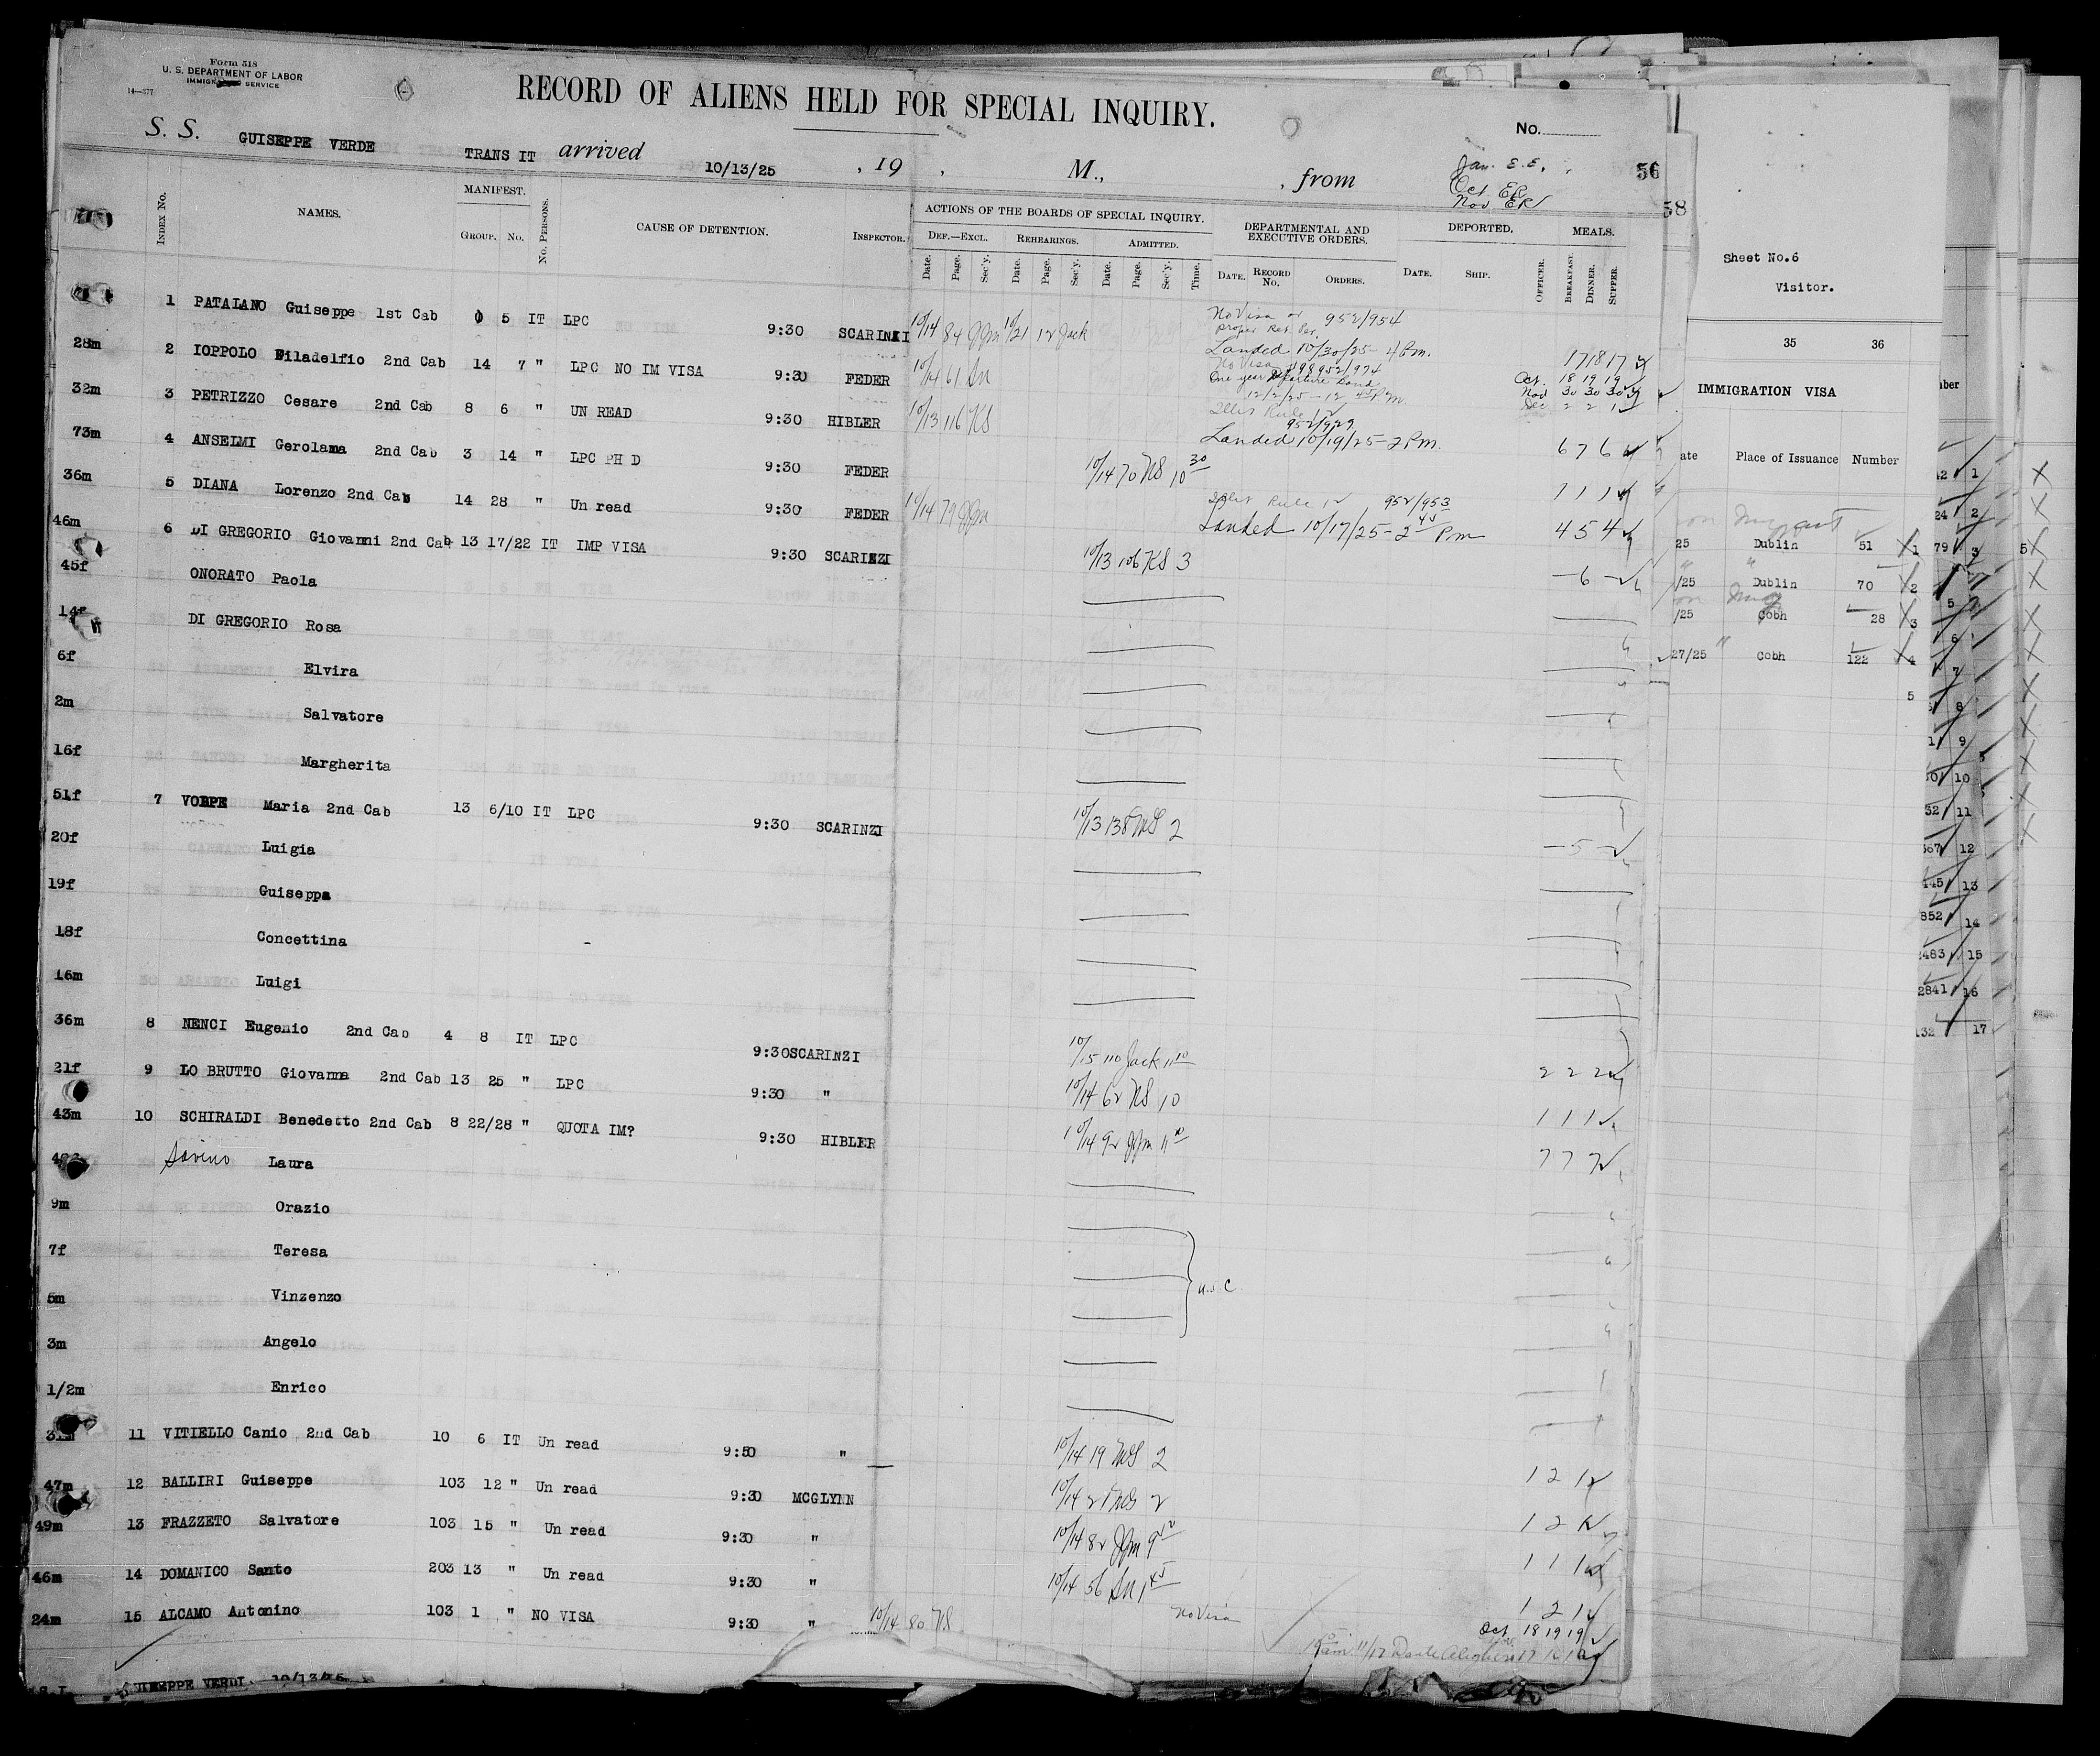 Form 318
U. S. DEPARTMENT OF LABOR
IMMIGRATION SERVICE
14—377
RECORD OF ALIENS HELD FOR SPECIAL INQUIRY.
No.
S. S. GUISEPPE VERDE TRANSIT arrived 10/13/25 , 19 , M., , from
Jan. E.E.
Oct. ER
Nov ER
56
58
INDEX No. NAMES. MANIFEST. GROUP. No. No. PERSONS. CAUSE OF DETENTION. INSPECTOR.
ACTIONS OF THE BOARDS OF SPECIAL INQUIRY. DEPARTMENTAL AND EXECUTIVE ORDERS. DEPORTED. MEALS.
DEF.—EXCL. REHEARINGS. ADMITTED.
Date. Page. Sec'y. Date. Page. Sec'y. Date. Page. Sec'y. Time. DATE. RECORD No. ORDERS. DATE. SHIP. OFFICER. BREAKFAST. DINNER. SUPPER.
1 PATALANO Guiseppe 1st Cab 5 IT LPC 9:30 SCARINZI 10/14 84 10/21 12 Jack No Visa or proper Ret. Per. 952/954
Landed 10/30/25- 4 Pm. 17 18 17
28m 2 IOPPOLO Filadelfio 2nd Cab 14 7 " LPC NO IM VISA 9:30 FEDER 10/14 61 No Visa
One year Departure Bond
12/2/25 - 12 Pm.
Oct. 18 19 19
Nov 30 30 30
Dec 2 2 1
32m 3 PETRIZZO Cesare 2nd Cab 8 6 " UN READ 9:30 HIBLER 10/13 116 KS Illit Rule 12 952/929
Landed 10/19/25 - 2 Pm. 6 7 6
73m 4 ANSELMI Gerolama 2nd Cab 3 14 " LPC PH D 9:30 FEDER 10/14 70 NS 10 30 1 1 1
36m 5 DIANA Lorenzo 2nd Cab 14 28 " Un read 9:30 FEDER 10/14 79 Illit Rule 12 952/953
Landed 10/17/25 - 2 45 Pm 4 5 4
46m 6 DI GREGORIO Giovanni 2nd Cab 13 17/22 IT IMP VISA 9:30 SCARINZI 10/13 106 KS 3 – 6 –
45f ONORATO Paola
14f DI GREGORIO Rosa
6f Elvira
2m Salvatore
16f Margherita
51f 7 VOLPE Maria 2nd Cab 13 6/10 IT LPC 9:30 SCARINZI 10/13 138 MS 2 – 5 –
20f Luigia
19f Guiseppa
18f Concettina
16m Luigi
36m 8 NENCI Eugenio 2nd Cab 4 8 IT LPC 9:30 SCARINZI 10/15 110 Jack 11 10 2 2 2
21f 9 LO BRUTTO Giovanna 2nd Cab 13 25 " LPC 9:30 " 10/14 62 NS 10 1 1 1
43m 10 SCHIRALDI Benedetto 2nd Cab 8 22/28 " QUOTA IM? 9:30 HIBLER 10/14 92 11 7 7 7
Savino Laura
9m Orazio
7f Teresa
5m Vinzenzo
U.S.C.
3m Angelo
1/2m Enrico
11 VITIELLO Canio 2nd Cab 10 6 IT Un read 9:50 " 10/14 19 MS 2 1 2 1
47m 12 BALLIRI Guiseppe 103 12 " Un read 9:30 MCGLYNN 10/14 2 1 2
49m 13 FRAZZETO Salvatore 103 15 " Un read 9:30 " 10/14 82 9 1 1 1
46m 14 DOMANICO Santo 203 13 " Un read 9:30 " 10/14 56 1 45 1 2 1
24m 15 ALCAMO Antonino 103 1 " NO VISA 9:30 " 10/14 80 NS No Visa Oct 18 19 19
11/17 Dante Alighieri
GUISEPPE VERDI 10/13/25
Sheet No.6
Visitor.
35 36
IMMIGRATION VISA
Place of Issuance Number
25 Dublin 51 1
/25 Dublin 70 2
/25 Cobh 28 3
27/25 " Cobh 122 4
5
1
24 2
79 3
5
6
7
8
9
10
11
12
445 13
852 14
2483 15
2841 16
132 17